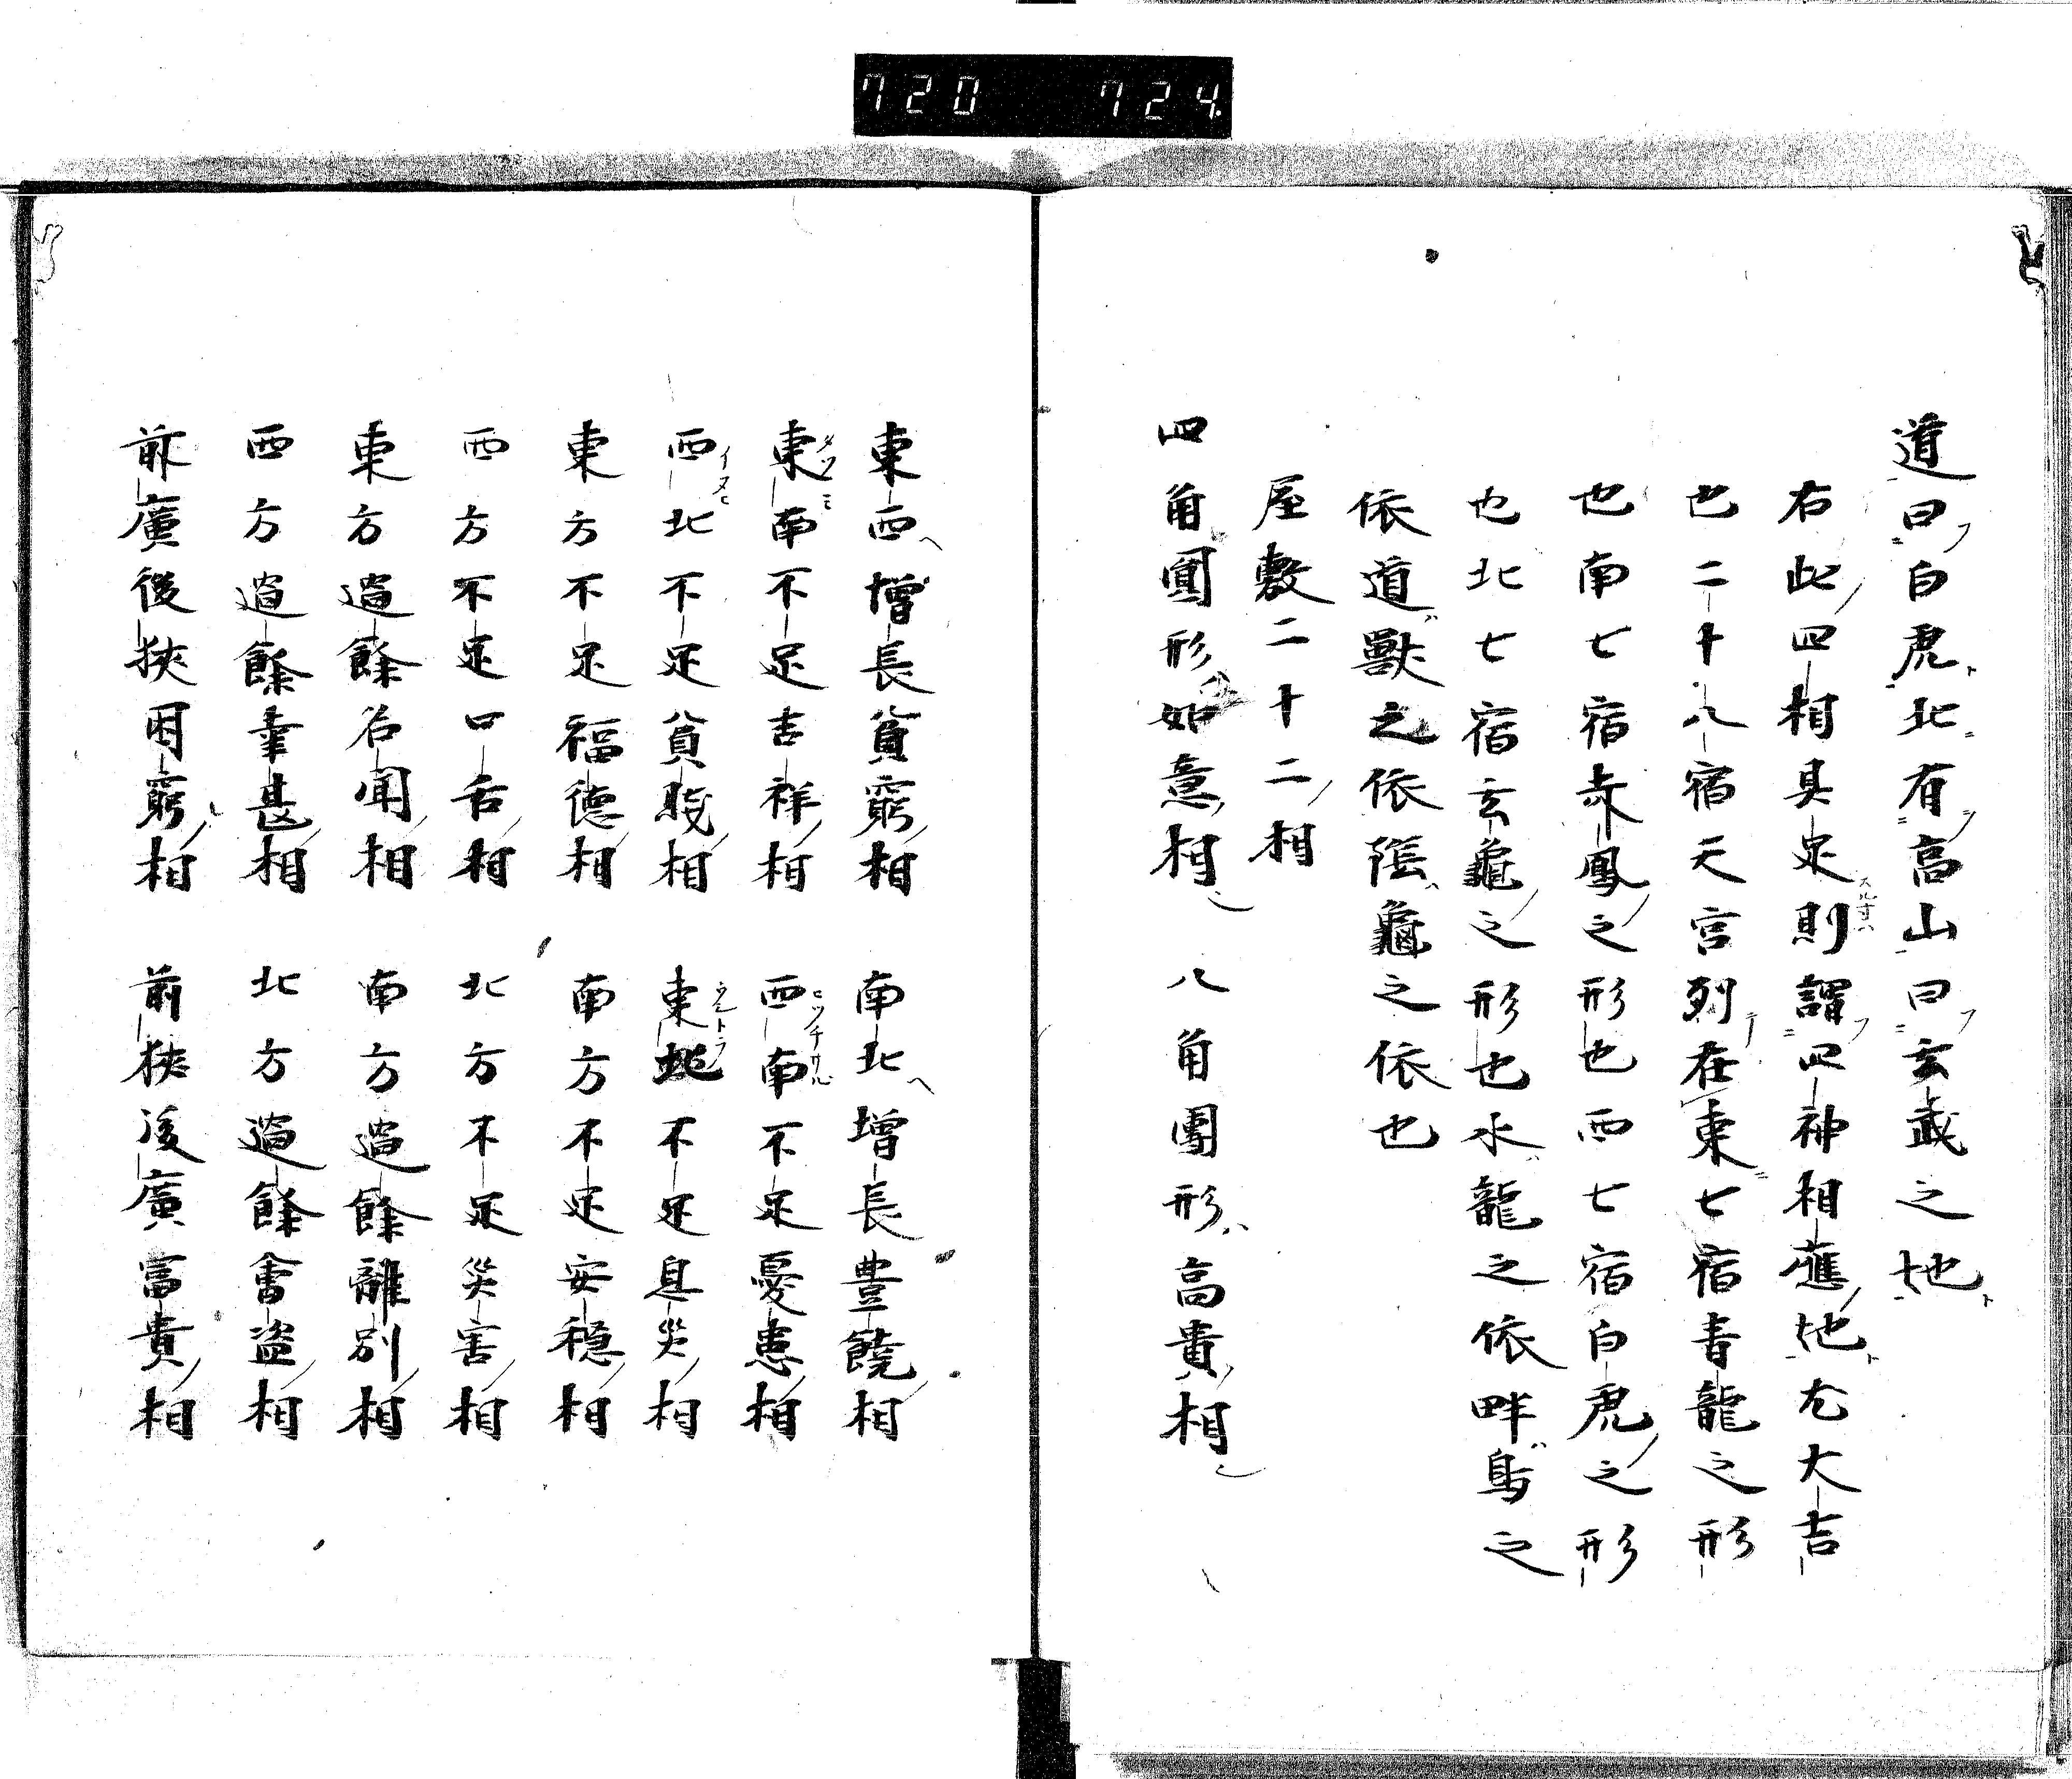 720 724
道曰白虎北有高山曰玄武之地
右此四相具足則謂四神相應地尤大吉
也二十八宿天宮列在東七宿青龍之形
也南七宿赤鳳之形也西七宿白虎之形
也北七宿玄龜之形也水龍之依畔鳥之
依道獸之依陰龜之依也
屋敷二十二相
四角圓形如意相 八角團形高貴相
東西增長貧窮相 南北增長豊饒相
東南不足吉祥相 西南不足憂患相
西北不足貧賤相 東北不足息災相
東方不足福德相 南方不足安穏相
西方不足口舌相 北方不足災害相
東方過餘名聞相 南方過餘離別相
西方過餘幸甚相 北方過餘書盗相
前廣後狹困窮相 前狹後廣富貴相